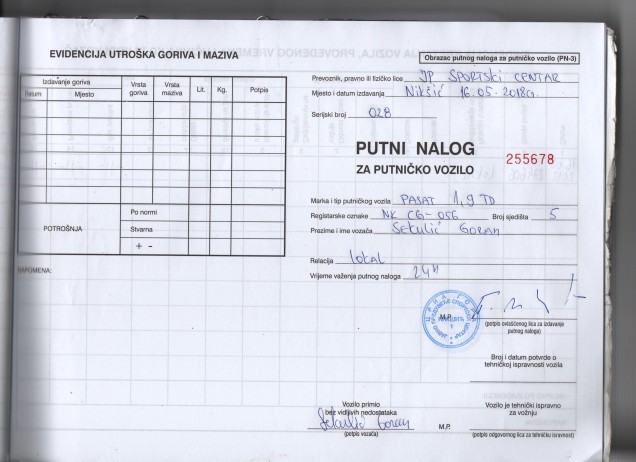 EVIDENCIJA UTROŠKA GORIVA I MAZIVA
Izdavanje goriva
Datum Mjesto Vrsta goriva Vrsta maziva Lit. Kg. Potpis
POTROŠNJA
Po normi
Stvarna
+ -
NAPOMENA:
Obrazac putnog naloga za putničko vozilo (PN-3)
Prevoznik, pravno ili fizičko lice JP SPORTSKI CENTAR
Mjesto i datum izdavanja Nikšić 16.05.2018 G.
Serijski broj 028
PUTNI NALOG
ZA PUTNIČKO VOZILO
255678
Marka i tip putničkog vozila PASAT 1,9 TD
Registarske oznake NK CG-056 Broj sjedišta 5
Prezime i ime vozača Sekulić Goran
Relacija lokal
Vrijeme važenja putnog naloga 24 h
M.P.
(potpis ovlašćenog lica za izdavanje
putnog naloga)
Broj i datum potvrde o
tehničkoj ispravnosti vozila
Vozilo primio
bez vidljivih nedostataka
Sekulić Goran
(potpis vozača)
M.P.
Vozilo je tehnički ispravno
za vožnju
(potpis odgovornog lica za tehničku ispravnost)